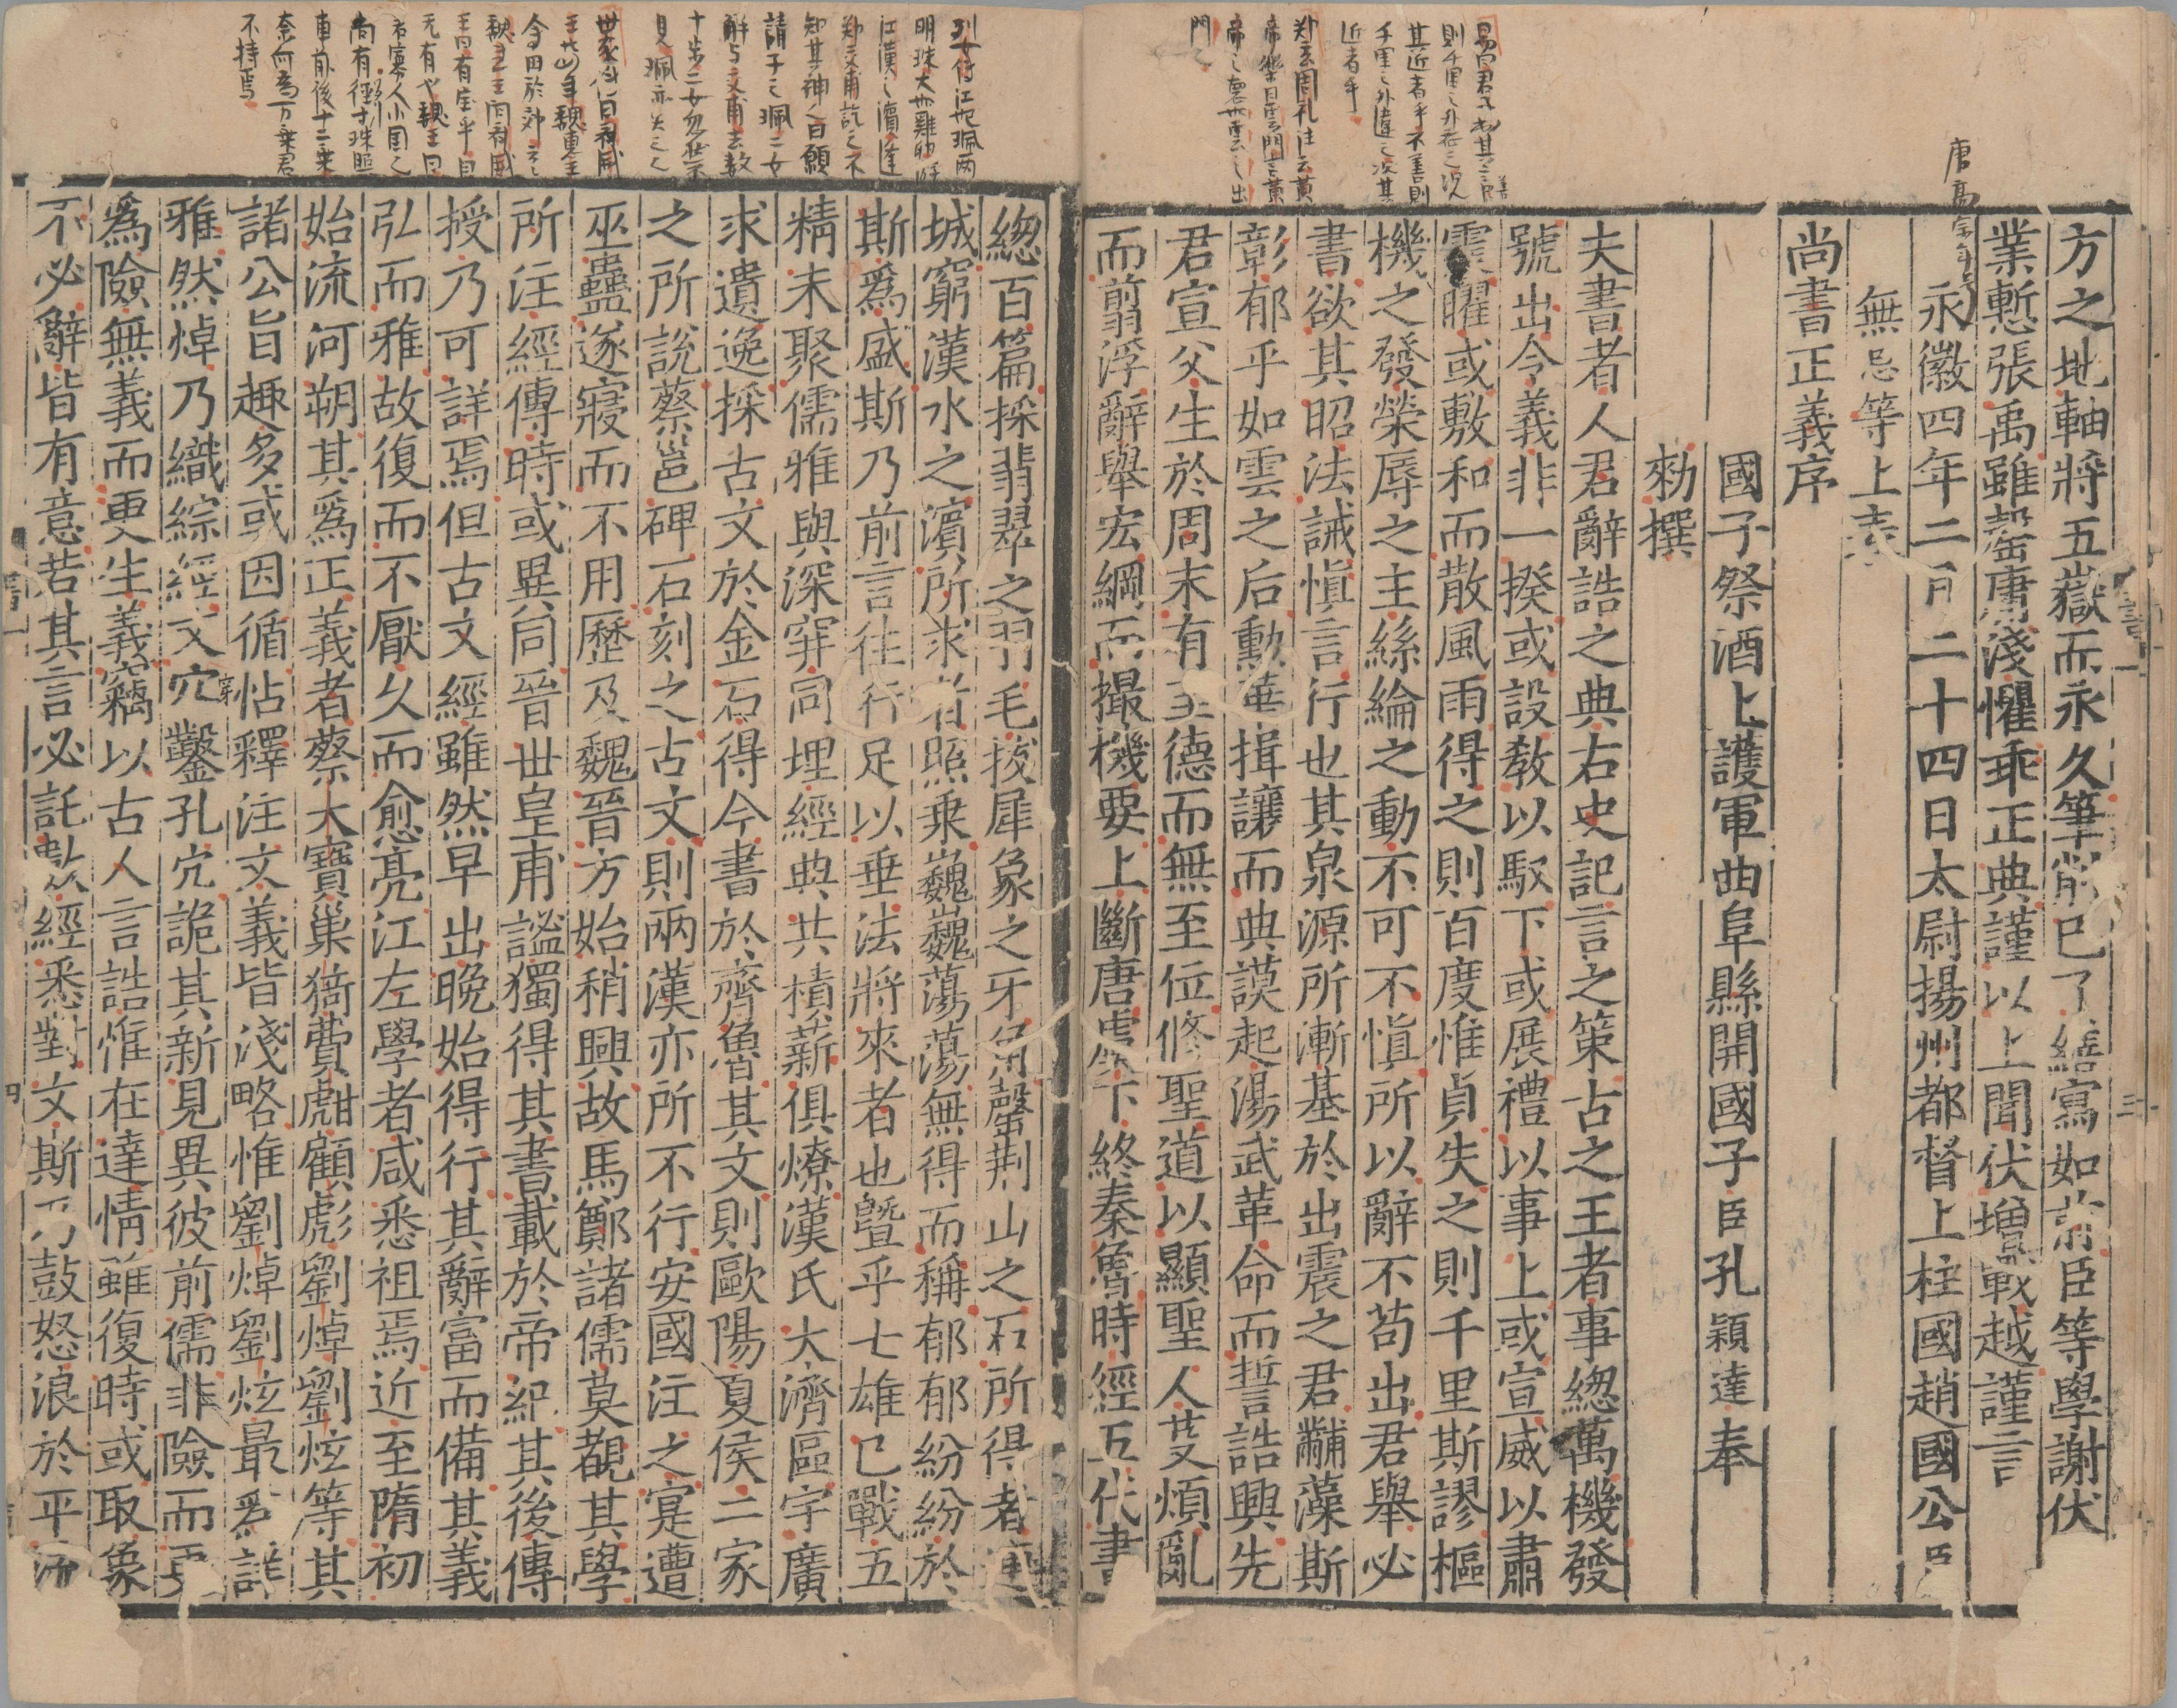 方之地軸將五嶽而永久筆削已了繕寫如前臣等學謝伏
業慙張禹雖罄庸淺懼乖正典謹以上聞伏增戰越謹言
永徽四年二月二十四日太尉揚州都督上柱國趙國公臣
無忌等上表
尚書正義序
國子祭酒上護軍曲阜縣開國子臣孔穎達奉
勑撰
夫書者人君辭誥之典右史記言之策古之王者事緫萬機發
號出令義非一揆或設教以馭下或展禮以事上或宣威以肅
震曜或敷和而散風雨得之則百度惟貞失之則千里斯謬樞
機之發榮辱之主絲綸之動不可不慎所以辭不苟出君舉必
書欲其昭法誡慎言行也其泉源所漸基於出震之君黼藻斯
彰郁乎如雲之后勳華揖讓而典謨起湯武革命而誓誥興先
君宣父生於周末有至德而無至位修聖道以顯聖人芟煩亂
而翦浮辭舉宏綱而撮機要上斷唐虞下終秦魯時經五代書
緫百篇採翡翠之羽毛拔犀象之牙角罄荆山之石所得者連
城窮漢水之濱所求者照乗巍巍蕩蕩無得而稱郁郁紛紛於
斯爲盛斯乃前言往行足以垂法將來者也曁乎七雄已戰五
精未聚儒雅與深穽同埋經典共積薪俱燎漢氏大濟區宇廣
求遺逸採古文於金石得今書於齊魯其文則歐陽夏侯二家
之所說蔡邕碑石刻之古文則兩漢亦所不行安國注之寔遭
巫蠱遂寢而不用歷及魏晉方始稍興故馬鄭諸儒莫覩其學
所注經傳時或異同晉世皇甫謐獨得其書載於帝紀其後傳
授乃可詳焉但古文經雖然早出晚始得行其辭富而備其義
弘而雅故復而不厭久而愈亮江左學者咸悉祖焉近至隋初
始流河朔其爲正義者蔡大寶巢猗費甝顧彪劉焯劉炫等其
諸公旨趣多或因循怗釋注文義皆淺略惟劉焯劉炫最爲詳
雅然焯乃織綜經文穴鑿孔穴詭其新見異彼前儒非險而更
爲險無義而更生義竊以古人言誥惟在達情雖復時或取象
不必辭皆有意若其言必託數經悉對文斯乃鼓怒浪於平流